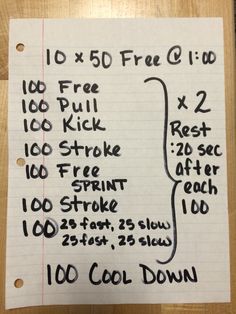 10 x 50 Free @ 1:00
100 Free
100 Pull
100 Kick
100 Stroke
100 Free
SPRINT
100 Stroke
100 25 fast, 25 slow
25 fast, 25 slow
x 2
Rest
:20 sec
after
each
100
100 COOL DOWN